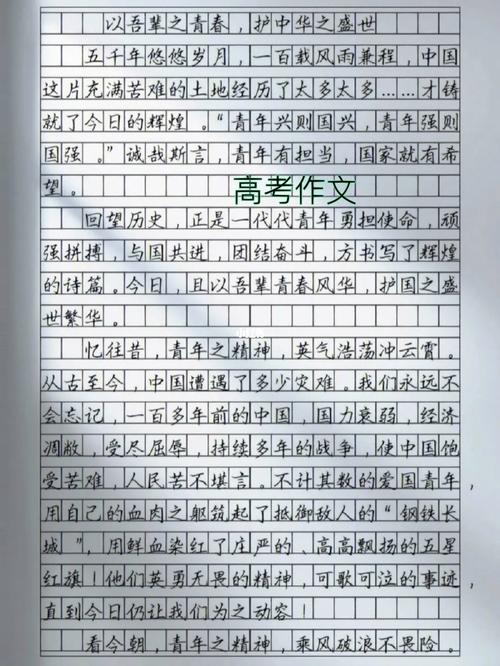 以吾辈之青春，护中华之盛世
五千年悠悠岁月，一百载风雨兼程，中国
这片充满苦难的土地经历了太多太多……才铸
就了今日的辉煌。“青年兴则国兴，青年强则
国强。”诚哉斯言，青年有担当，国家就有希
望。
高考作文
回望历史，正是一代代青年勇担使命，顽
强拼搏，与国共进，团结奋斗，方书写了辉煌
的诗篇。今日，且以吾辈青春风华，护国之盛
世繁华。
忆往昔，青年之精神，英气浩荡冲云霄。
从古至今，中国遭遇了多少灾难。我们永远不
会忘记，一百多年前的中国，国力衰弱，经济
凋敝，受尽屈辱，持续多年的战争，使中国饱
受苦难，人民苦不堪言。不计其数的爱国青年，
用自己的血肉之躯筑起了抵御敌人的“钢铁长
城”，用鲜血染红了庄严的、高高飘扬的五星
红旗！他们英勇无畏的精神，可歌可泣的事迹，
直到今日仍让我们为之动容！
看今朝，青年之精神，乘风破浪不畏险。